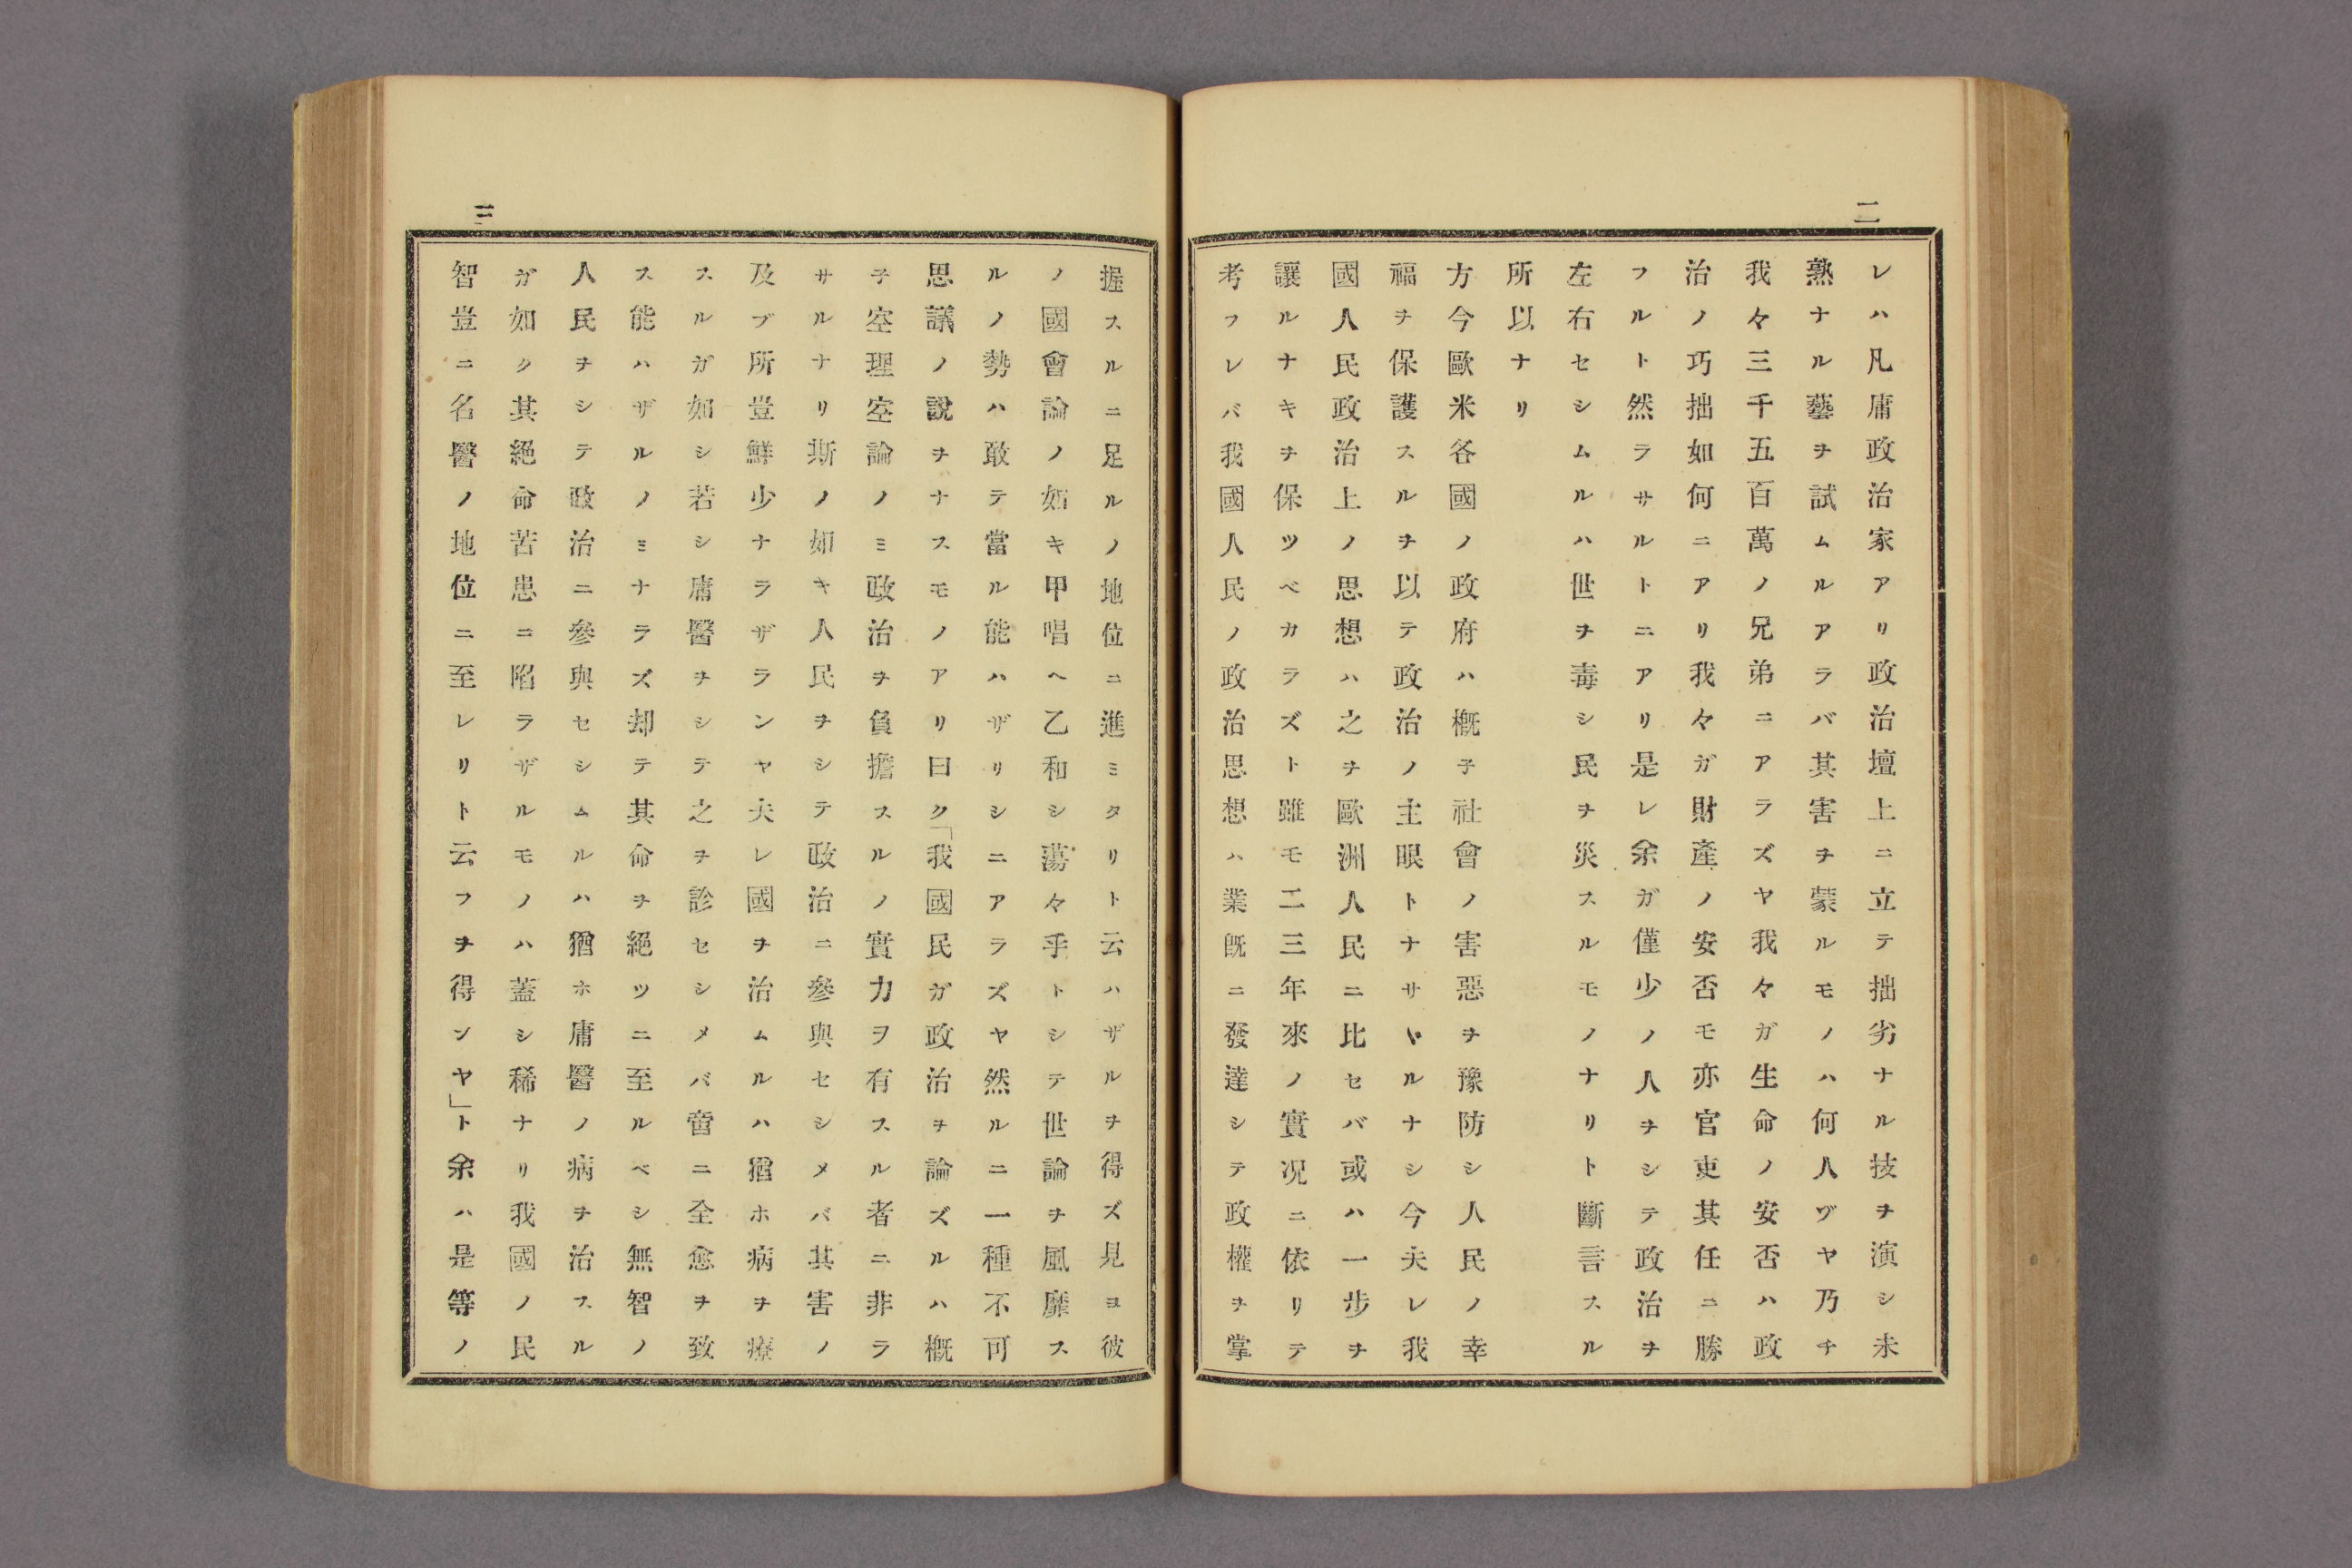 二
レハ凡庸政治家アリ政治壇上ニ立テ拙劣ナル技ヲ演シ未
熟ナル藝ヲ試ムルアラバ其害ヲ蒙ルモノハ何人ヅヤ乃チ
我々三千五百萬ノ兄弟ニアラズヤ我々ガ生命ノ安否ハ政
治ノ巧拙如何ニアリ我々ガ財產ノ安否モ亦官吏其任ニ勝
フルト然ラサルトニアリ是レ余ガ僅少ノ人ヲシテ政治ヲ
左右セシムルハ世ヲ毒シ民ヲ災スルモノナリト斷言スル
所以ナリ
方今歐米各國ノ政府ハ概子社會ノ害惡ヲ豫防シ人民ノ幸
福ヲ保護スルヲ以テ政治ノ主眼トナサヾルナシ今夫レ我
國人民政治上ノ思想ハ之ヲ歐洲人民ニ比セバ或ハ一步ヲ
讓ルナキヲ保ツベカラズト雖モ二三年來ノ實況ニ依リテ
考フレバ我國人民ノ政治思想ハ業既ニ發達シテ政權ヲ掌
三
握スルニ足ルノ地位ニ進ミタリト云ハザルヲ得ズ見ヨ彼
ノ國會論ノ如キ甲唱ヘ乙和シ蕩々乎トシテ世論ヲ風靡ス
ルノ勢ハ敢テ當ル能ハザリシニアラズヤ然ルニ一種不可
思議ノ說ヲナスモノアリ曰ク「我國民ガ政治ヲ論ズルハ概
子空理空論ノミ政治ヲ負擔スルノ實力ヲ有スル者ニ非ラ
サルナリ斯ノ如キ人民ヲシテ政治ニ參與セシメバ其害ノ
及ブ所豈鮮少ナラザランヤ夫レ國ヲ治ムルハ猶ホ病ヲ療
スルガ如シ若シ庸醫ヲシテ之ヲ診セシメバ啻ニ全愈ヲ致
ス能ハザルノミナラズ却テ其命ヲ絕ツニ至ルベシ無智ノ
人民ヲシテ政治ニ參與セシムルハ猶ホ庸醫ノ病ヲ治スル
ガ如ク其絕命苦患ニ陷ラザルモノハ蓋シ稀ナリ我國ノ民
智豈ニ名醫ノ地位ニ至レリト云フヲ得ンヤ」ト余ハ是等ノ